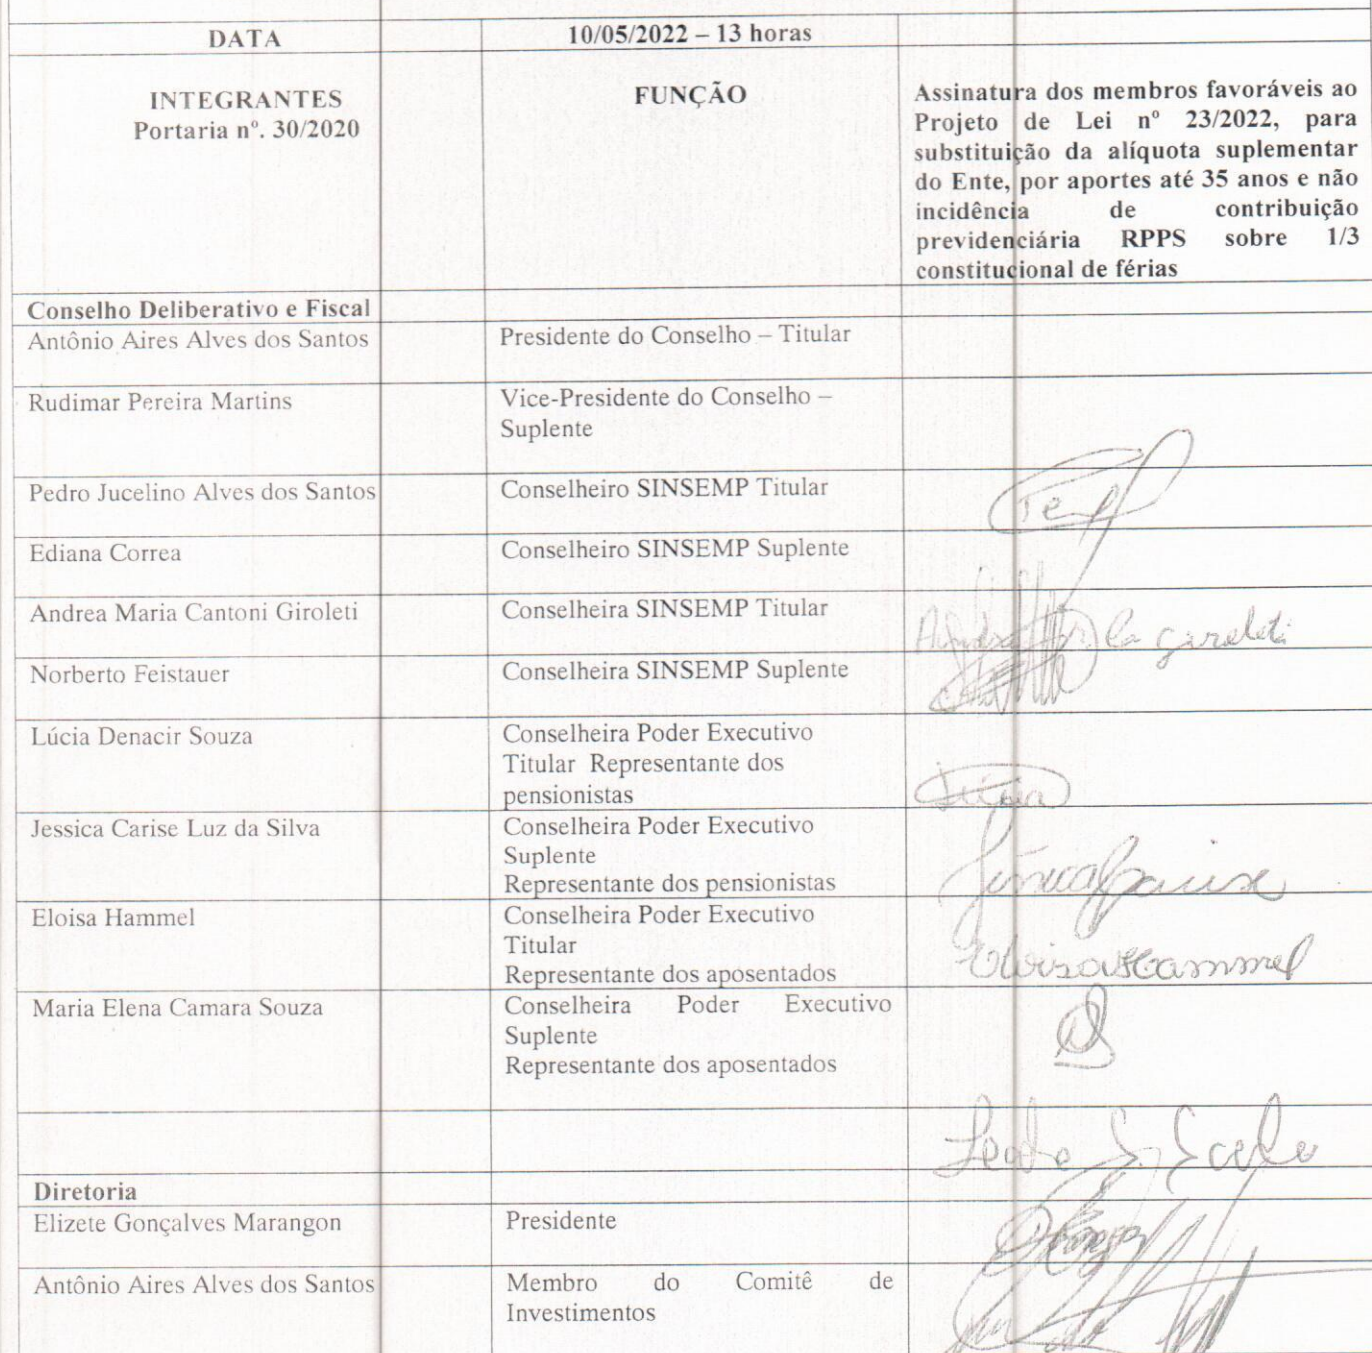 DATA
10/05/2022 – 13 horas
INTEGRANTES
Portaria nº. 30/2020
FUNÇÃO
Assinatura dos membros favoráveis ao
Projeto de Lei nº 23/2022, para
substituição da alíquota suplementar
do Ente, por aportes até 35 anos e não
incidência de contribuição
previdenciária RPPS sobre 1/3
constitucional de férias
Conselho Deliberativo e Fiscal
Antônio Aires Alves dos Santos
Presidente do Conselho – Titular
Rudimar Pereira Martins
Vice-Presidente do Conselho –
Suplente
Pedro Jucelino Alves dos Santos
Conselheiro SINSEMP Titular
Ediana Correa
Conselheiro SINSEMP Suplente
Andrea Maria Cantoni Giroleti
Conselheira SINSEMP Titular
Norberto Feistauer
Conselheira SINSEMP Suplente
Lúcia Denacir Souza
Conselheira Poder Executivo
Titular Representante dos
pensionistas
Jessica Carise Luz da Silva
Conselheira Poder Executivo
Suplente
Representante dos pensionistas
Eloisa Hammel
Conselheira Poder Executivo
Titular
Representante dos aposentados
Eloisa Hammel
Maria Elena Camara Souza
Conselheira Poder Executivo
Suplente
Representante dos aposentados
Diretoria
Elizete Gonçalves Marangon
Presidente
Antônio Aires Alves dos Santos
Membro do Comitê de
Investimentos